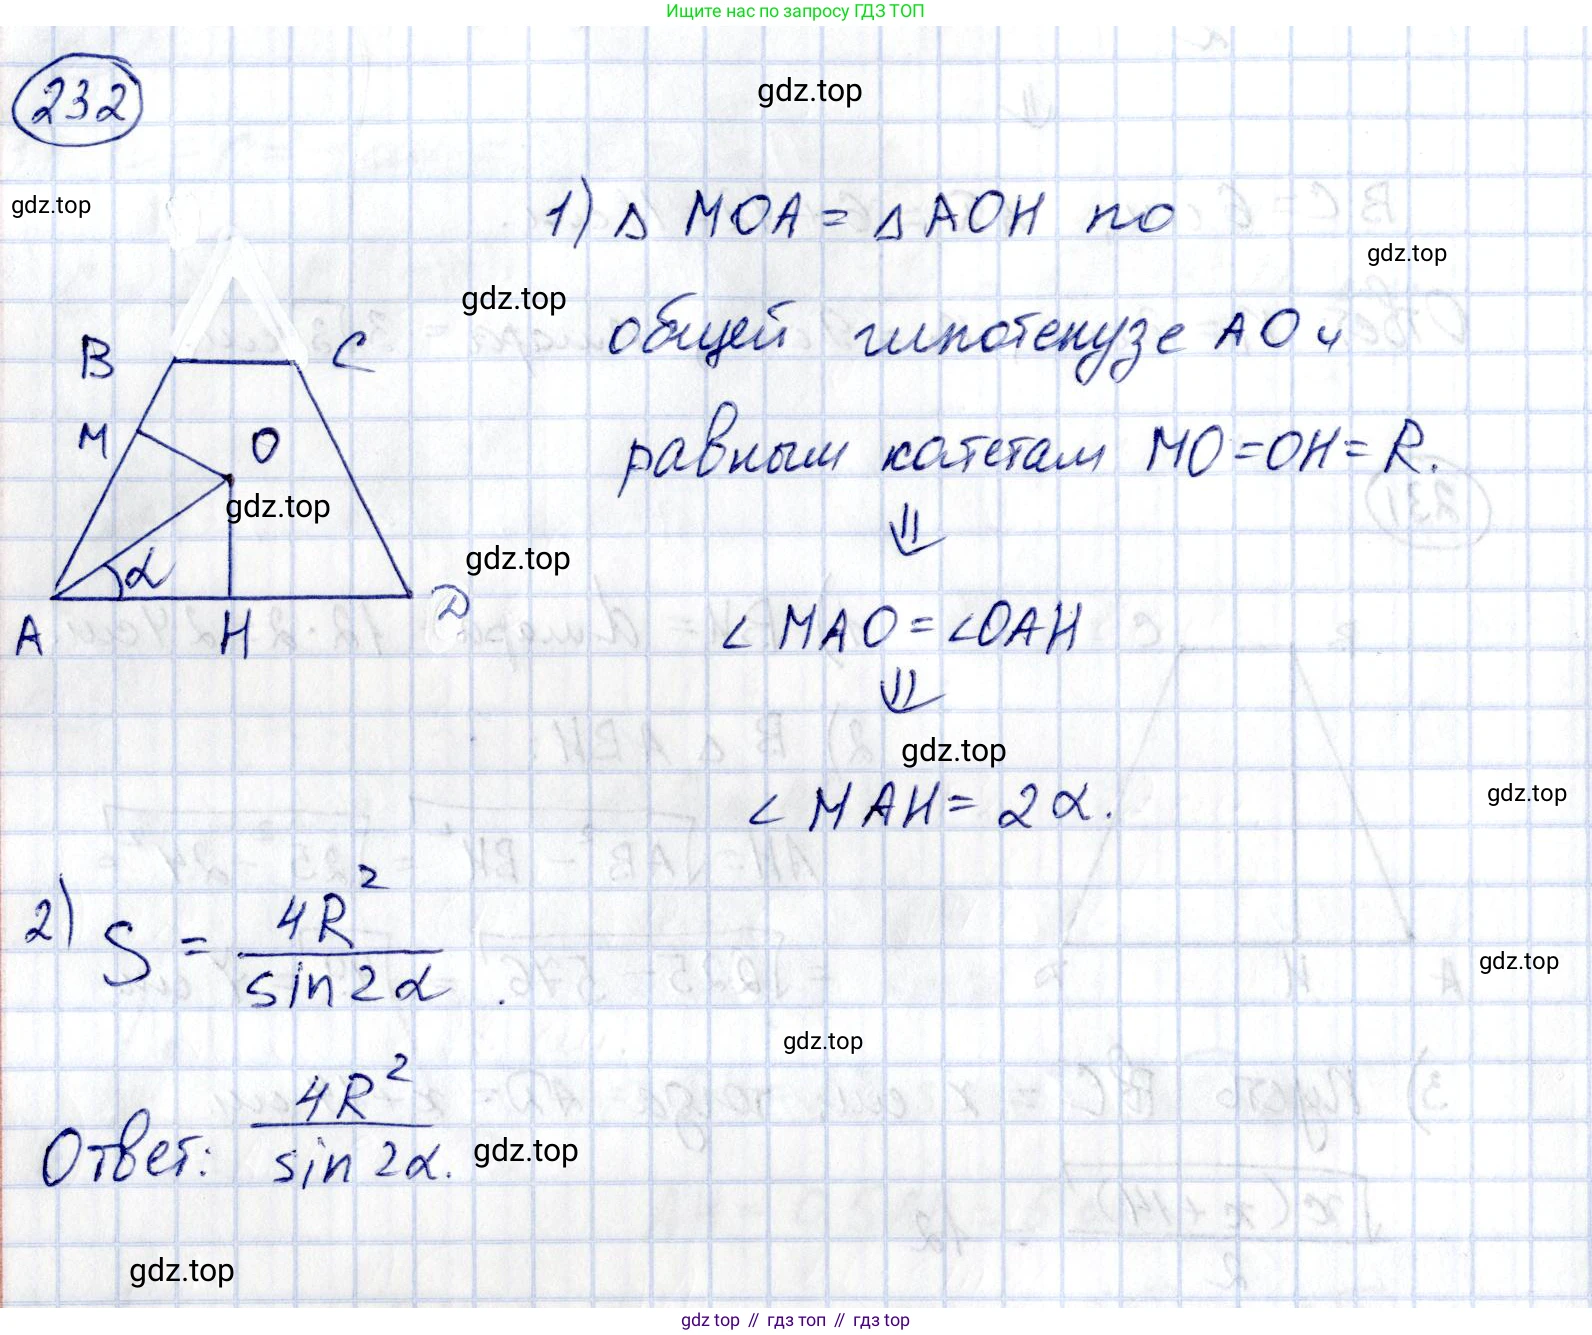 Ищите нас по запросу ГДЗ ТОП
232
gdz.top
gdz.top
1) Δ MOA = Δ AOH по
gdz.top
gdz.top
общей гипотенузе AO и
B C
равным катетам MO = OH = R.
M O
gdz.top
⇓
gdz.top
α
∠ MAO = ∠OAH
A H D
⇓
gdz.top
∠ MAH = 2α.
gdz.top
2) S = 4R² / sin 2α.
gdz.top
gdz.top
Ответ: 4R² / sin 2α.
gdz.top
gdz.top
gdz.top // гдз топ // гдз top